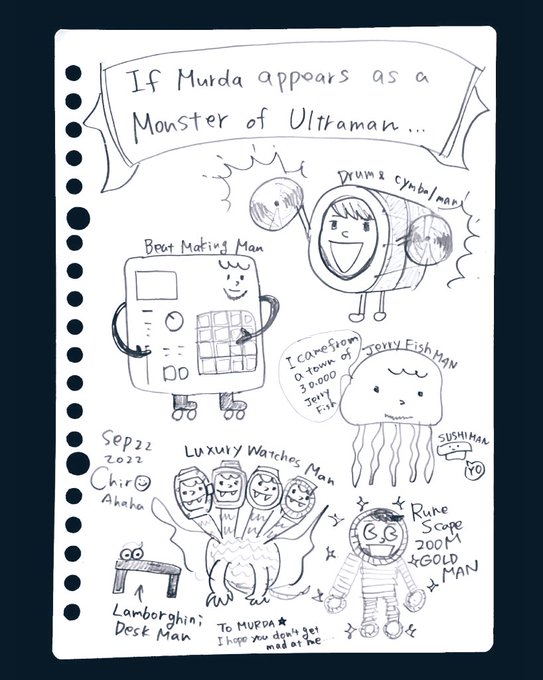 If Murda appears as a
Monster of Ultraman...
Drum & cymbal man
Beat Making Man
I came from
a town of
30.000
Jerry
Fish
Jerry Fish MAN
SUSHI MAN
YO
Sep 22
2022
Chiro
Ahaha
Luxury Watches Man
Rune
Scape
200M
GOLD
MAN
Lamborghini
Desk Man
To MURDA★
I hope you don't get
mad at me...